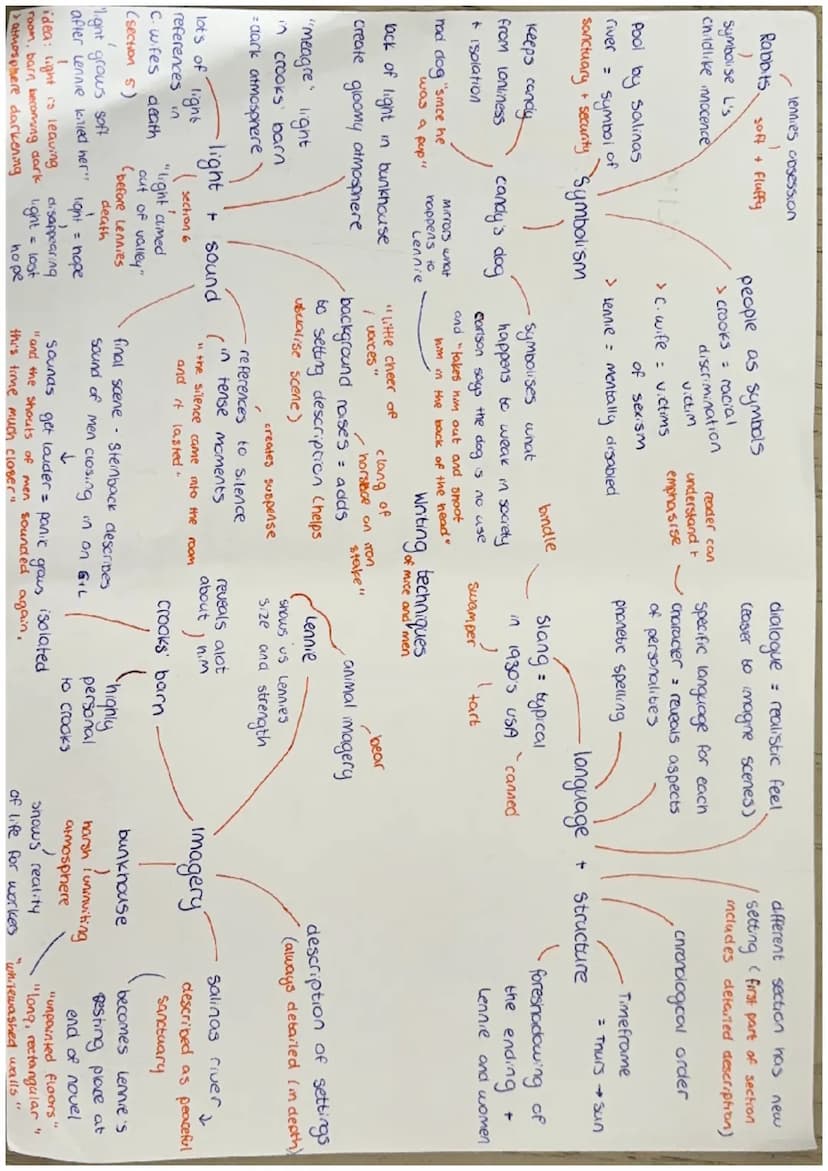 Writing techniques
of mice and men
Symbolism
Rabbits
lennies obsession
soft + fluffy
symbolise L's
childlike innocence
Pool by Salinas
river = symbol of
sanctuary + security
people as symbols
> crooks = racial
discrimination
victim
> C. wife = victims
of sexism
> lennie = mentally disabled
candy's dog
keeps candy
from lonliness
+ isolation
had dog "since he
was a pup"
mirrors what
happens to
Lennie
symbolises what
happens to weak in society
carlson says the dog is no use
and "takes him out and shoot
him in the back of the head"
light + sound
lots of light
references in
C. wifes death
(section 5)
"light grows soft
after lennie killed her"
idea: light is leaving
room, barn becoming dark
> atmosphere darkening
"meagre" light
in crooks' barn
= dark atmosphere
lack of light in bunkhouse
create gloomy atmosphere
section 6
"light climed
out of valley"
(before Lennies
death
light = hope
disappearing
light = lost
hope
background noises = adds
to setting description (helps
visualise scene)
"little cheer of
voices"
"clang of
horseshoe on iron
stake"
references to silence
in tense moments
creates suspense
"the silence came into the room
and it lasted"
final scene - Steinback describes
sound of men closing in on G+L
sounds get louder = panic grows
"and the shouts of men sounded again,
this time much closer"
language + structure
dialogue = realistic feel
(easier to imagine scenes)
specific language for each
character = reveals aspects
of personalities
reader can
understand +
emphasise
phonetic spelling
Slang = typical
in 1930's USA
bindle
swamper
tart
canned
different section has new
setting (first part of section
includes detailed description)
chronological order
Timeframe
= Thurs → Sun
foreshadowing of
the ending +
Lennie and women
Imagery
Lennie
animal imagery
bear
shows us Lennies
size and strength
crooks' barn
reveals alot
about him
isolated
highly
personal
to crooks
bunkhouse
harsh/uninviting
atmosphere
shows reality
of life for workers
"unpainted floors"
"long, rectangular"
"whitewashed walls"
description of settings
(always detailed/in depth)
salinas river
described as peaceful
sanctuary
becomes Lennie's
resting place at
end of novel